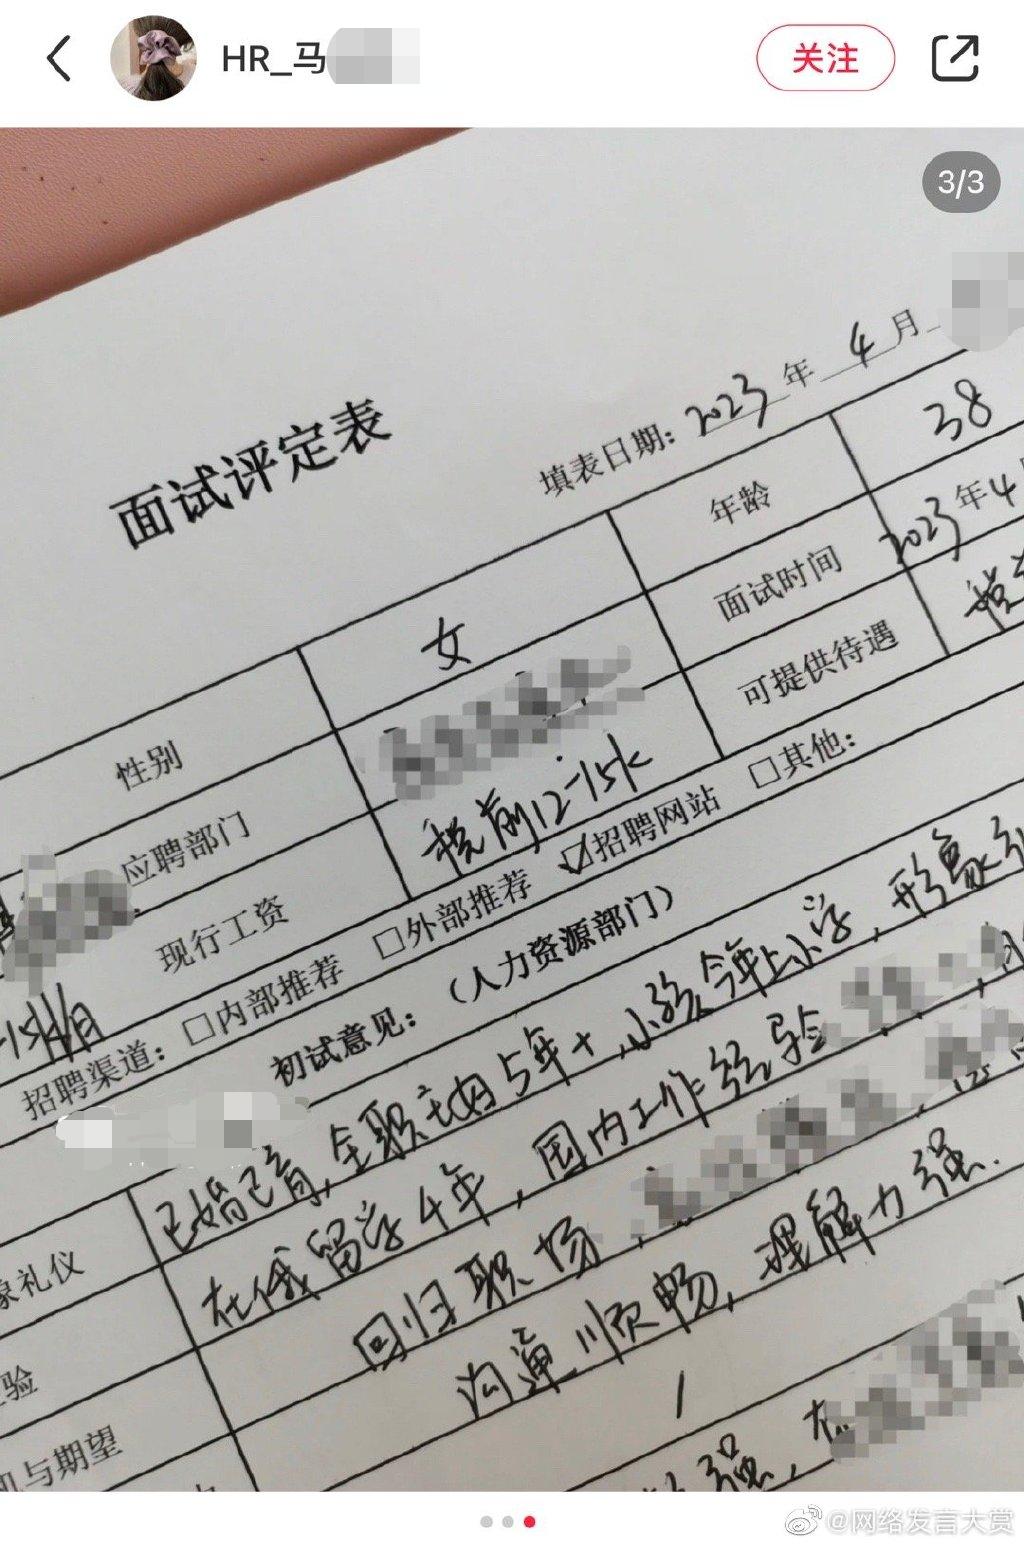 HR_马
关注
3/3
面试评定表
填表日期：2023年4月
性别 女 年龄 38
应聘部门 面试时间 2023年4
现行工资 税前12-15k 可提供待遇
招聘渠道：□内部推荐 □外部推荐 ☑招聘网站 □其他：
初试意见：（人力资源部门）
已婚已育，全职主妇5年+，小孩今年上小学，形象
礼仪
在俄留学4年，国内工作经验
验
回归职场，
与期望
沟通顺畅，理解力强.
强，
@网络发言大赏